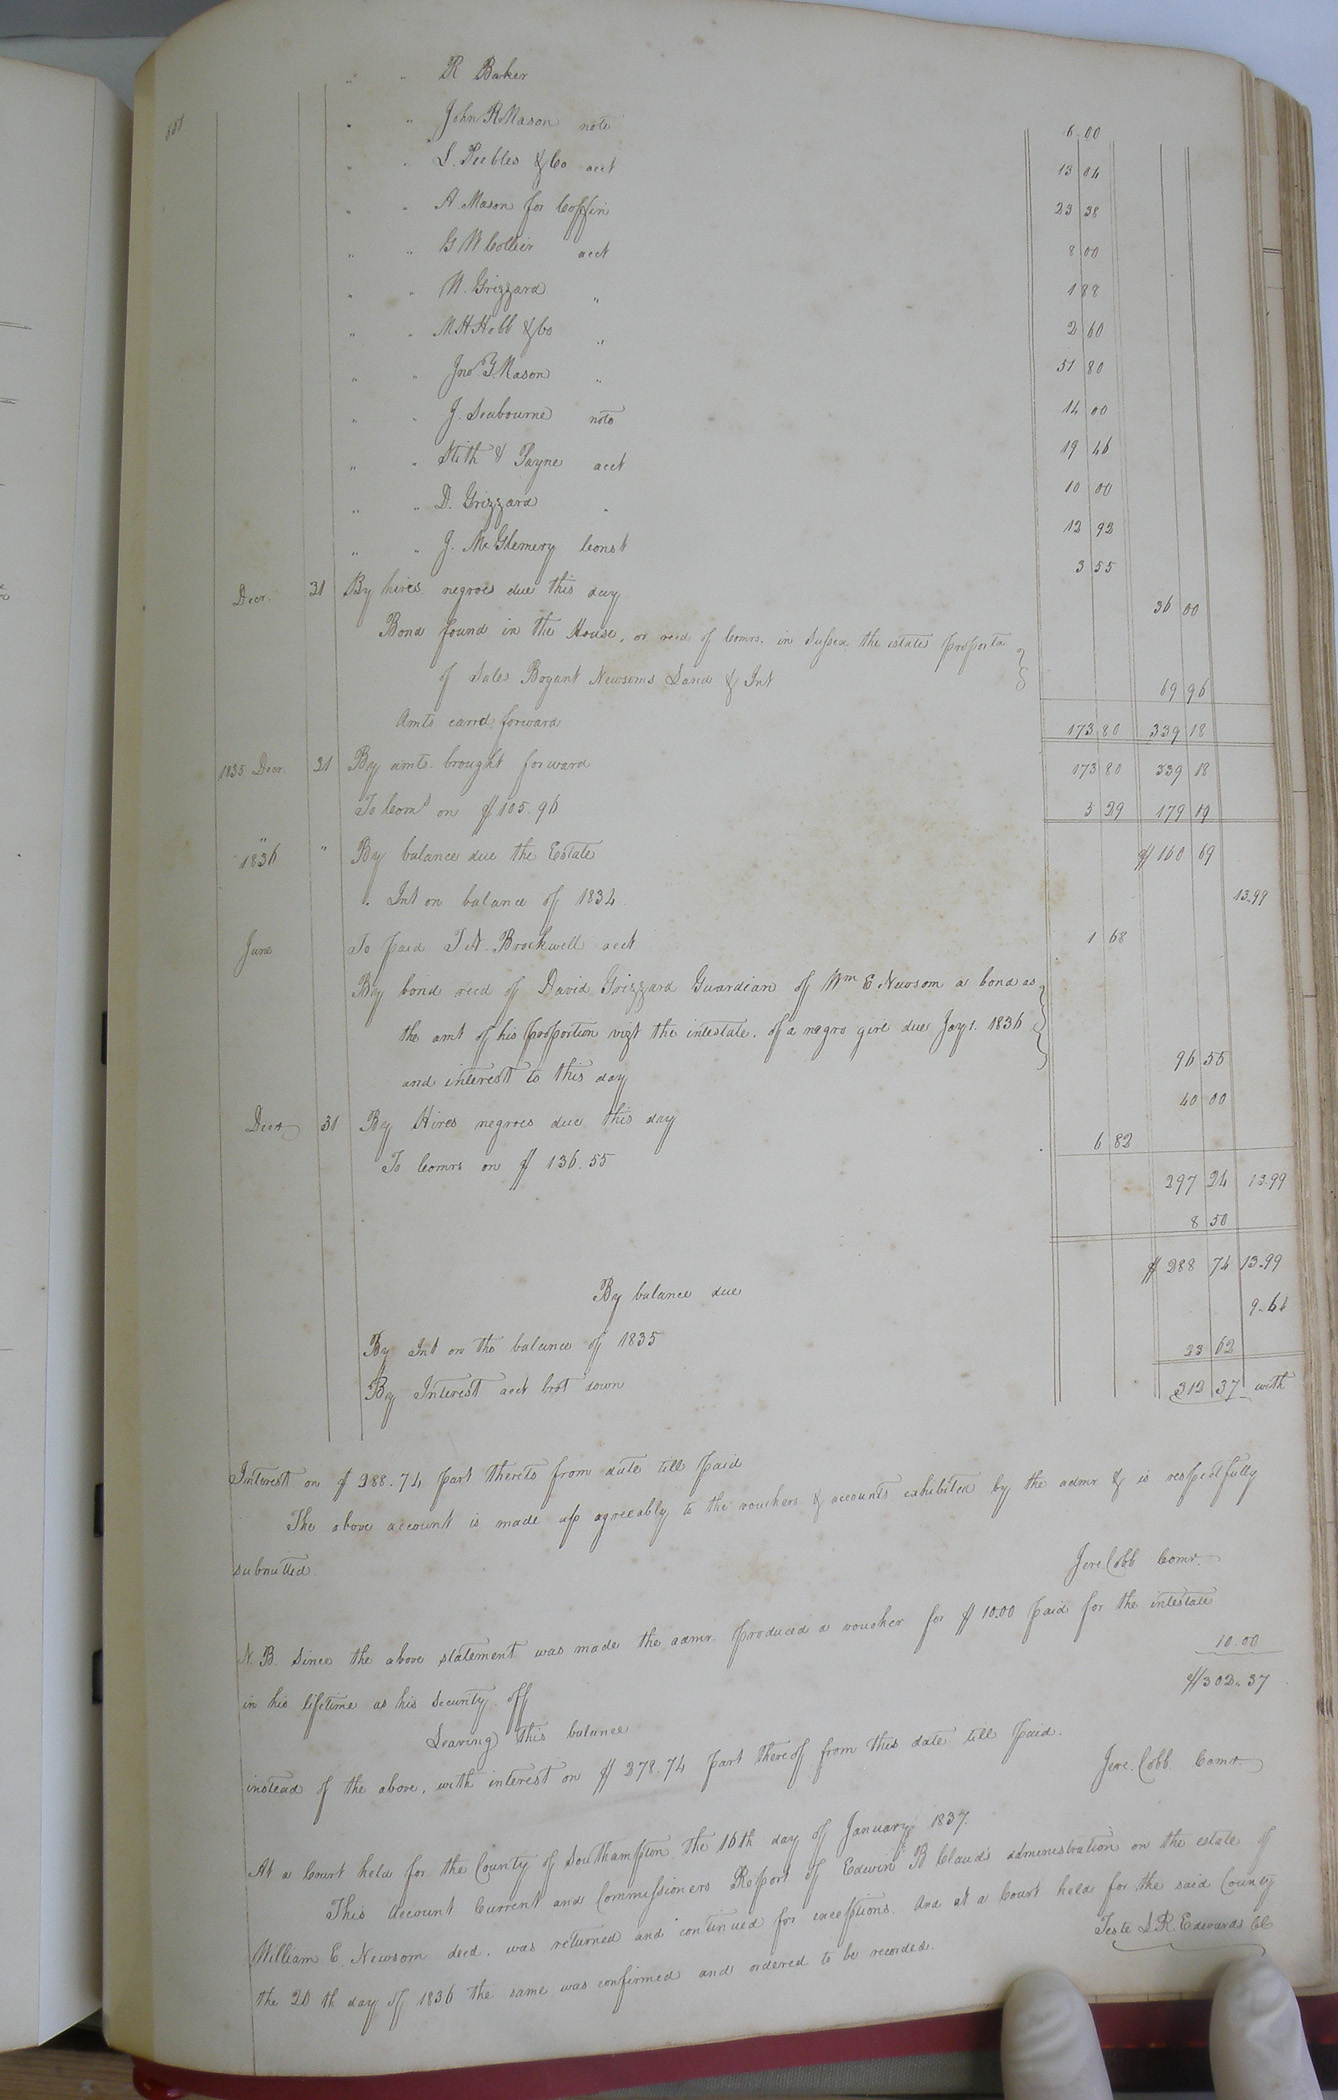 " " R Baker 6 00
" " John R Mason note 13 04
" " L. Peebles & Co acct 23 38
" " A. Mason for Coffin 8 00
" " G W Collier acct 1 88
" " W. Grizzard " 2 60
" " M H Hobb & Co " 51 80
" " Jno Y. Mason " 14 00
" " J. Seabourne note 19 46
" " Stith & Payne acct 10 00
" " D. Grizzard " 12 92
" " J. Mc Glemery Const 3 55
Decr. 31 By hires negroes due this day 36 00
Bond found in the House, or recd of Comrs. in Sussex the estates proporta
of Sales Bryant Newsoms Land & Int 69 96
Amts carrd forward 173 80 339 18
1835 Decr. 31 By amts. brought forward 173 80 339 18
To Coms on $105.96 5 29 179 19
1836 " By balance due the Estate $160 69
" Int on balance of 1834 13.99
June To paid T N. Brockwell acct 1 68
By bond recd of David Grizzard Guardian of Wm E. Newsom a bond as
the amt of his proportion vizt the intestate. of a negro girl due Jay 1. 1836
and interest to this day 96 55
Decr 31 By Hires negroes due this day 40 00
To Comrs on $ 136.55 6 82
297 24 13.99
8 50
By balance due $ 288 74 13.99
By Int on the balance of 1835 9.64
By Interest acct brot down 23 62
312 37 with
Interest on $ 288.74 part thereto from date till paid
The above account is made up agreeably to the vouchers & accounts exhibited by the admr & is respectfully
submitted.
Jere Cobb Comr.
N. B. Since the above statement was made the admr. produced a voucher for $ 10.00 paid for the intestate
in his lifetime as his Security. off 10.00
Leaving this balance $302.37
instead of the above, with interest on $ 278.74 part thereof from this date till paid.
Jere. Cobb Comr.
At a Court held for the County of Southampton the 16th day of January 1837.
This Account Current and Commissioners Report of Edwin B Clauds administration on the estate of
William E. Newsom decd. was returned and continued for exceptions. And at a Court held for the said County
the 20 th day of 1836 the same was confirmed and ordered to be recorded.
Teste L R. Edwards CC